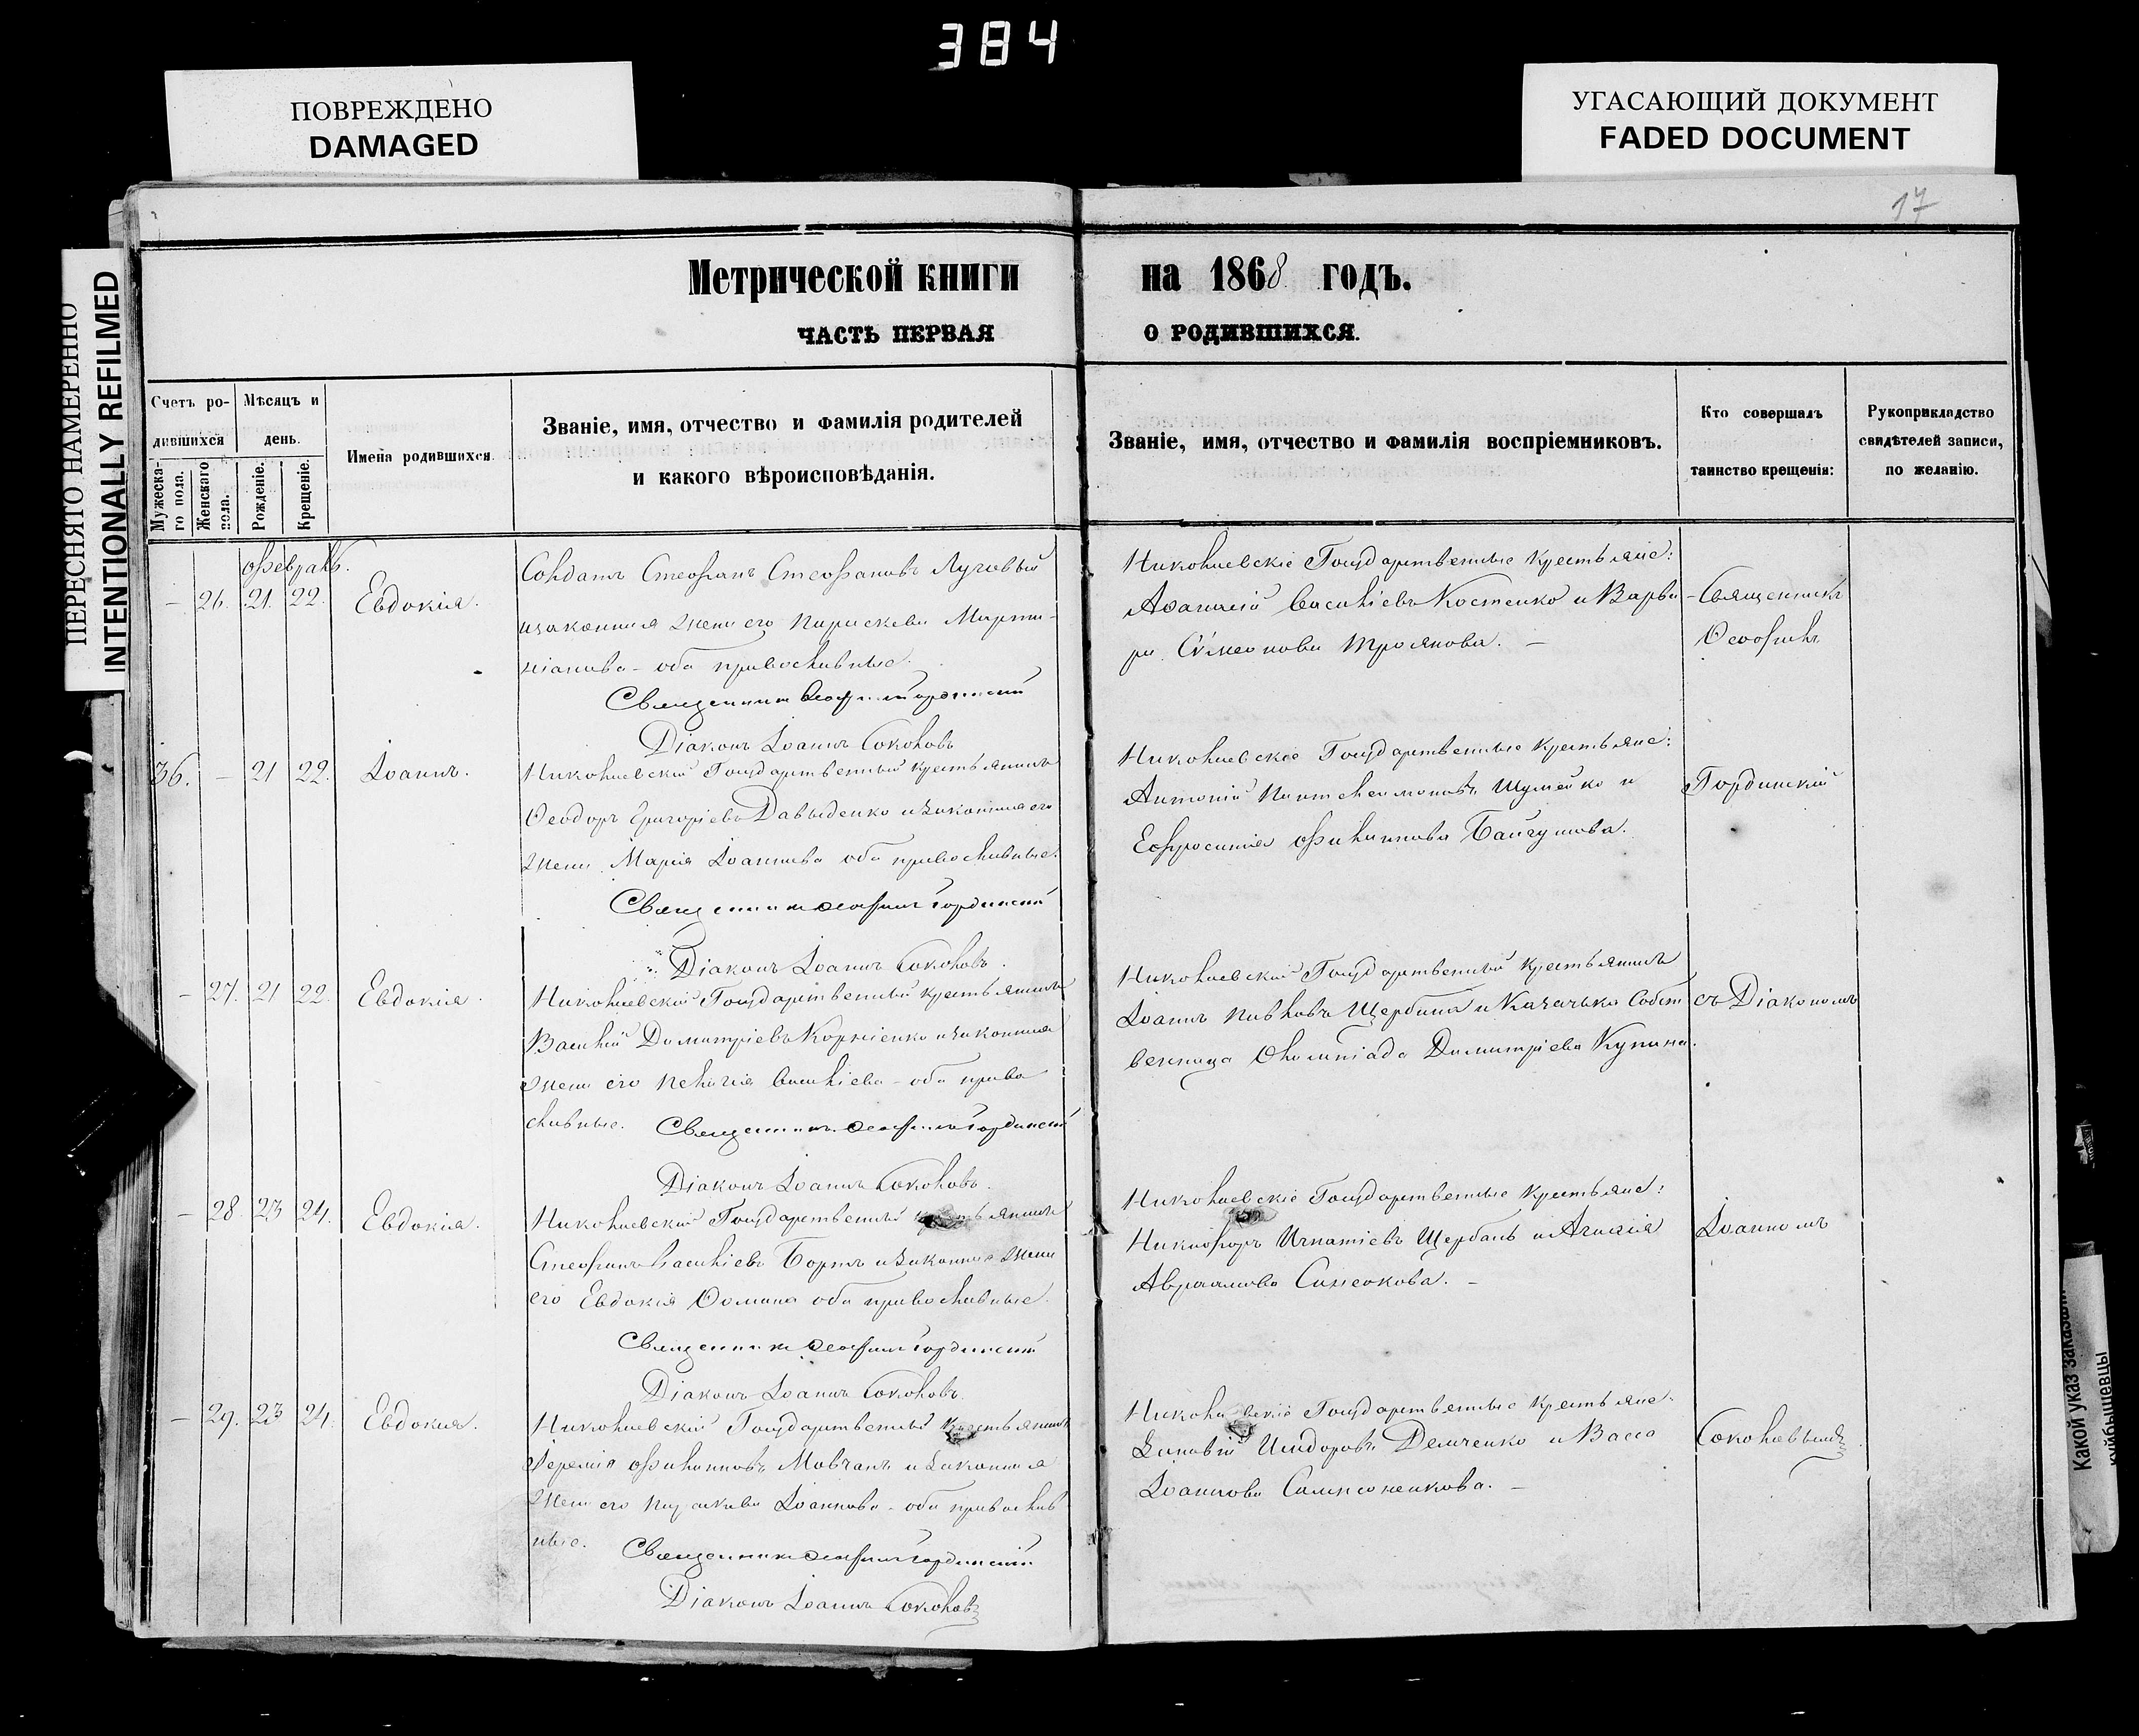 384
ПОВРЕЖДЕНО
DAMAGED
УГАСАЮЩИЙ ДОКУМЕНТ
FADED DOCUMENT
ПЕРЕСНЯТО НАМЕРЕННО
INTENTIONALLY REFILMED
17
Метрической книги на 1868 годъ.
ЧАСТЬ ПЕРВАЯ О РОДИВШИХСЯ.
Счетъ ро-
дившихся
Мужеска-
го пола.
Женскаго
пола.
Мѣсяцъ и
день.
Рожденіе.
Крещеніе.
Имена родившихся.
Званіе, имя, отчество и фамилія родителей
и какого вѣроисповѣданія.
Званіе, имя, отчество и фамилія воспріемниковъ.
Кто совершалъ
таинство крещенія:
Рукоприкладство
свидѣтелей записи,
по желанію.
Февраль.
— 26. 21. 22. Евдокія.
Солдатъ Стефанъ Стефановъ Луговый
изаконная жена его Параскева Марти-
ніанова - оба православные.
Священникъ Ѳеофилъ Гординскій
Діаконъ Іоаннъ Соколовъ
Николаевскіе Государственные Крестьяне:
Аѳанасій Василіевъ Костенко и Варва
ра Сѵмеонова Троянова. —
36. — 21 22. Іоаннъ.
Николаевскій Государственный крестьянинъ
Ѳеодоръ Григоріевъ Давыденко изаконная его
жена Марія Іоаннова оба православные.
Священникъ Ѳеофилъ Гординскій
Діаконъ Іоаннъ Соколовъ.
Николаевскіе Государственные Крестьяне:
Антоній Пантелеимоновъ Шулейко и
Евфросинія Филиппова Байгушова.
— 27. 21 22 Евдокія.
Николаевскій Государственный крестьянинъ
Василій Димитріевъ Корніенко изаконная
жена его Пелагія Василіева - оба право
славные. Священникъ Ѳеофилъ Гординскій
Діаконъ Іоаннъ Соколовъ.
Николаевскій Государственный Крестьянинъ
Іоаннъ Павловъ Щербина и Казачька Собст
венница Олимпіада Димитріева Купина.
— 28. 23 24. Евдокія.
Николаевскій Государственный крестьянинъ
Стефанъ Василіевъ Бортъ изаконная жена
его Евдокія Ѳомина оба православные.
Священникъ Ѳеофилъ Гординскій
Діаконъ Іоаннъ Соколовъ.
Николаевскіе Государственные Крестьяне:
Никифоръ Игнатіевъ Щербань и Агаѳія
Авраамова Синеокова. —
— 29. 23 24. Евдокія.
Николаевскій Государственный Крестьянинъ
Іеремія Филипповъ Мовчанъ изаконная
жена его Параскева Іоаннова - оба православ
ные. Священникъ Ѳеофилъ Гординскій
Діаконъ Іоаннъ Соколовъ
Николаевскіе Государственные Крестьяне:
Зиновій Исидоровъ Демченко и Васса
Іоаннова Самсоненкова. —
— Священникъ
Ѳеофилъ
Гординскій
съ Діакономъ
Іоанномъ
Соколовымъ
Какой указ заказали
куйбышевцы